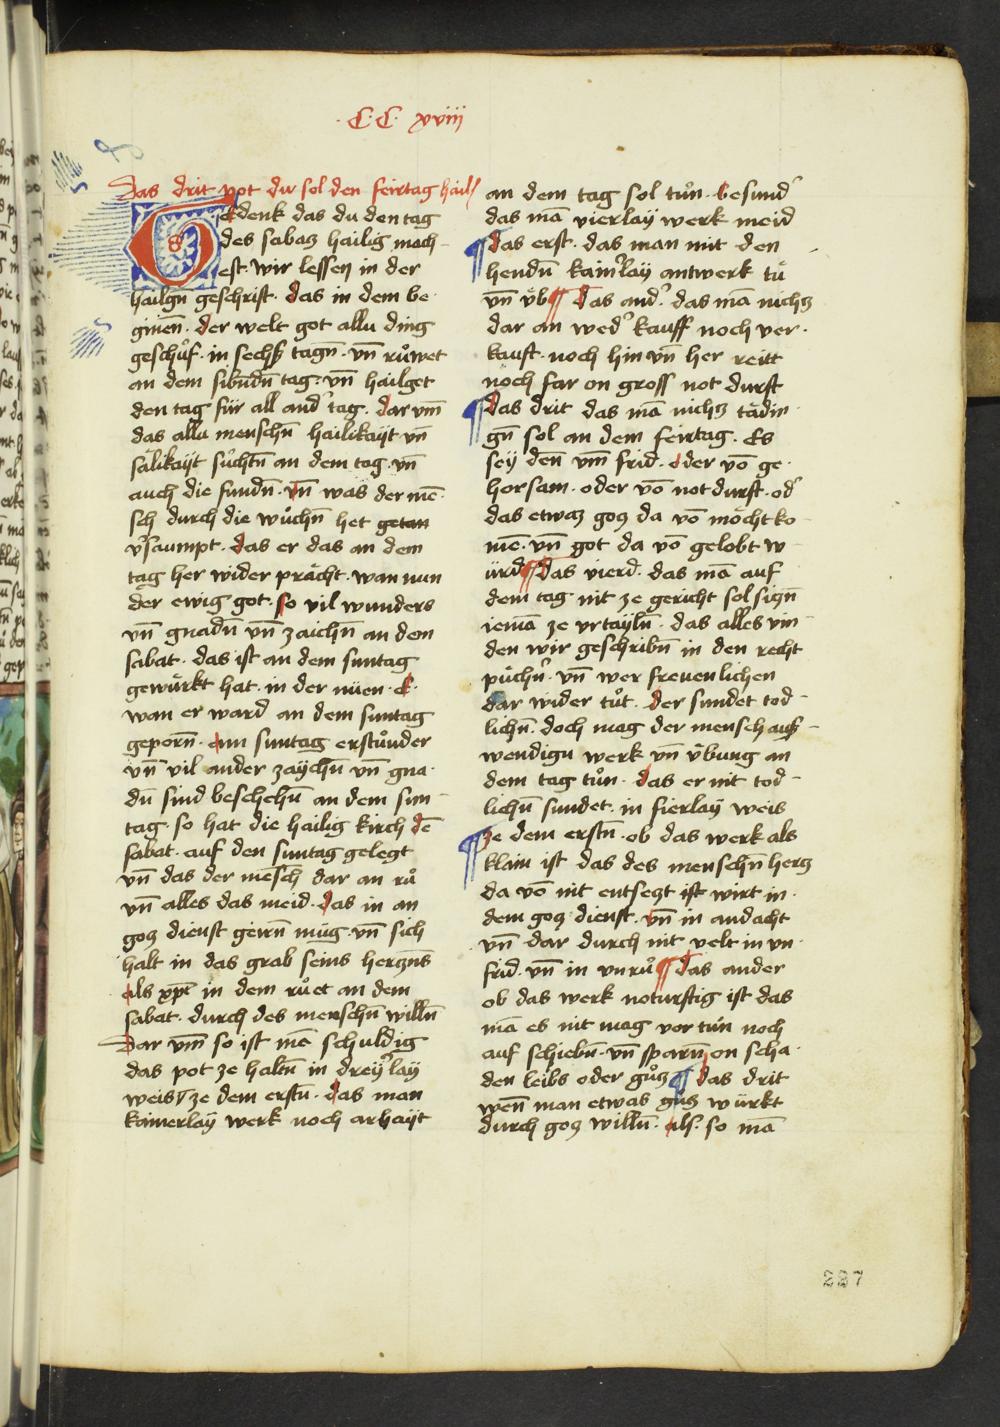 .C.C. xviij
Das drit pot du sol den feirtag hail
Gedenk das du den tag
des sabaz hailig mach-
est. wir lessen in der
hailgn̄ geschrift. das in dem be-
ginen̄. der welt got allu ding
geschůf. in sechß tagn̄. vn̄ růwet
an dem sibn̄dn̄ tag. vn̄ hailget
den tag für all and' tag. dar vm̄
das allu menschn̄ hailikayt vn̄
sälikayt sůchtn̄ an dem tag. vn̄
auch die sundn̄. vn̄ was der mē-
sch durch die wůchn̄ het getan
v'saumpt. das er das an dem
tag her wider prächt. wan nun
der ewig got. so vil wunders
vn̄ gnadn̄ vn̄ zaichn̄ an dem
sabat. das ist an dem suntag
gewürkt hat. in der nüen. E.
wan er ward an dem suntag
geporn̄. am suntag erstůnder
vn̄ vil ander zaychn̄ vn̄ gna-
dn̄ sind beschehn̄ an dem sun-
tag. so hat die hailig kirch dē
sabat. auf den suntag gelegt
vn̄ das der mēsch dar an rů
vn̄ alles das meid. das in an
goz dienst geirn̄ müg. vn̄ sich
halt in das grab seins herczn̄s
als xp̄c in dem růet an dem
sabat. durch des menschn̄ willn̄
Dar vm̄ so ist mē schuldig
das pot ze haltn̄ in drey'lay
weis ze dem erstn̄. das man
kainerlay werk noch arbayt
an dem tag sol tůn. besund'
das mā vierlay werk meid
¶ das erst. das man mit den
hendn̄ kain'lay antwerk tů
vn̄ üb ¶ Das and'. das mā nichz
dar an wed' kauff noch ver-
kauft. noch hin vn̄ her reitt
noch far on gross not durft
¶ das drit das mā nichz tädin-
gn̄ sol an dem feirtag. Es
sey den̄ vm̄ frid. oder vō ge-
horsam. oder vō not durft. od'
das etwaz goz da vō möcht ko-
mē. vn̄ got da vō gelobt w-
ürd ¶ Das vierd. das mā auf
dem tag nit ze gericht sol siczn̄
iemā ze vrtayln̄. das alles vin-
den wir geschribn̄ in den recht
püchn̄. vn̄ wer freuenlichen
dar wider tůt. der sundet tod-
lichn̄. doch mag der mensch auß-
wendigu werk vn̄ übung an
dem tag tůn. das er nit tod-
lichn̄ sundet. in fierlay weis
¶ ze dem erstn̄. ob das werk als
klain ist das des menschn̄ hercz
da vō nit entseczt ist wirt in
dem goz dienst. vn̄ in andacht
vn̄ dar durch nit velt in vn-
frid. vn̄ in vnrů ¶ Das ander
ob das werk noturftig ist das
mā es nit mag vor tůn noch
auf schiebn̄. vn̄ sparn̄ on scha-
den leibs oder gůcz ¶ das drit
wen̄ man etwas gůcz würkt
durch goz willn̄. als. so mā
227